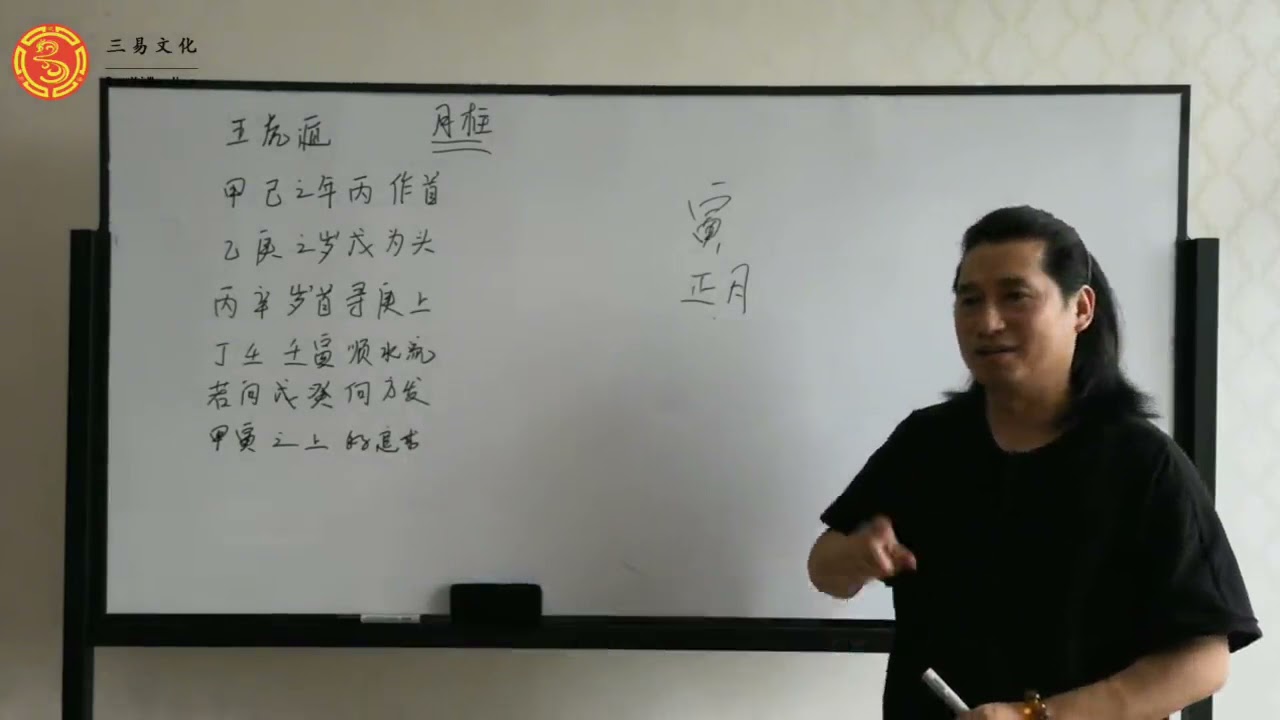 三易文化
五虎遁
月柱
甲己之年丙作首
乙庚之岁戊为头
丙辛岁首寻庚上
丁壬壬寅顺水流
若问戊癸何方发
甲寅之上
寅
正月